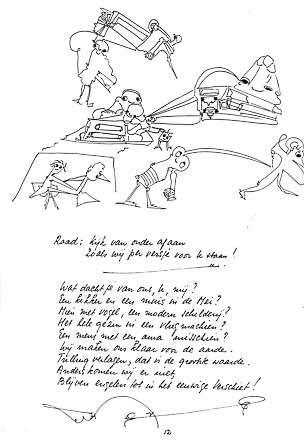 Raad: kijk van onder af aan
Zoals wij per versje voor U staan!
Wat dacht je van ons, U, mij?
Een kikker en een muis in de Mei?
Men met vogel, een modern schilderij?
Het hele gezin in een vliegmachien?
Een mens met een ama misschien?
Wij maken ons klaar voor de aarde.
Trilling verlagen, dat is de grootste waarde.
Anders komen wij er niet
Blijven engelen tot in het eeuwige verschiet!
12